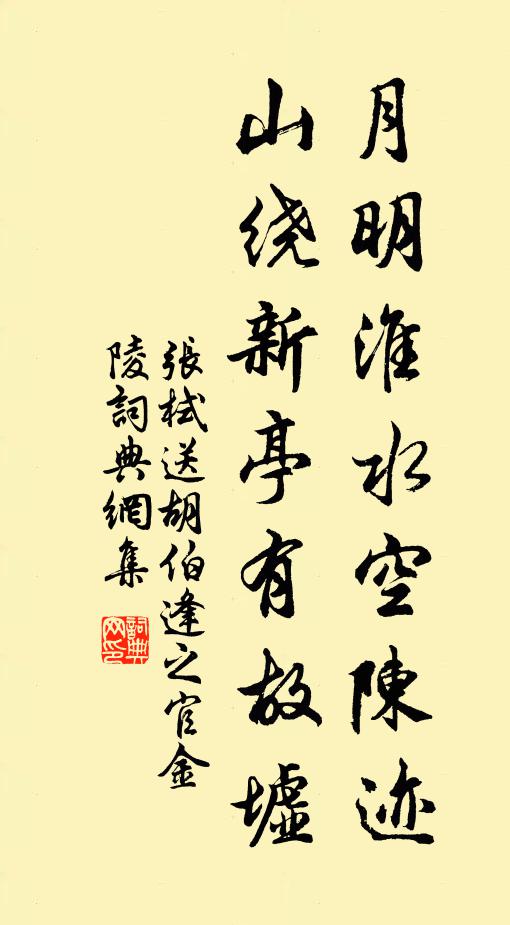 月明淮水空陳迹
山绕新亭有故墟
張栻送胡伯逢之官金
陵詞典網集
詞典
网印